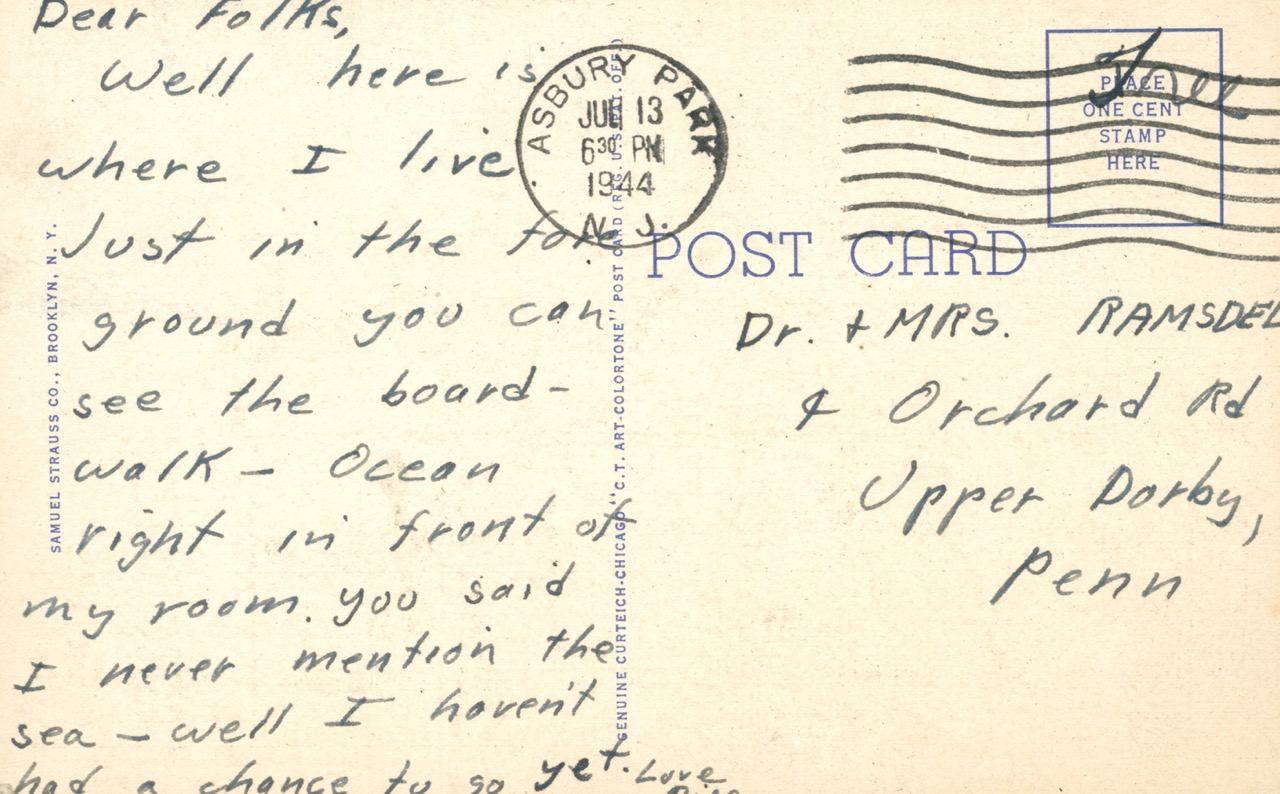 Dear Folks,
Well here is
where I live
Just in the fore
ground you can
see the board-
walk - Ocean
right in front of
my room. you said
I never mention the
sea - well I haven't
had a chance to go yet. Love
SAMUEL STRAUSS CO., BROOKLYN, N. Y.
GENUINE CURTEICH-CHICAGO "C.T. ART-COLORTONE" POST CARD (REG. U. S. PAT. OFF.)
ASBURY PARK
JUL 13
630 PM
1944
N. J.
PLACE
ONE CENT
STAMP
HERE
POST CARD
Dr. + MRS. RAMSDEL
Orchard Rd
Upper Darby,
Penn